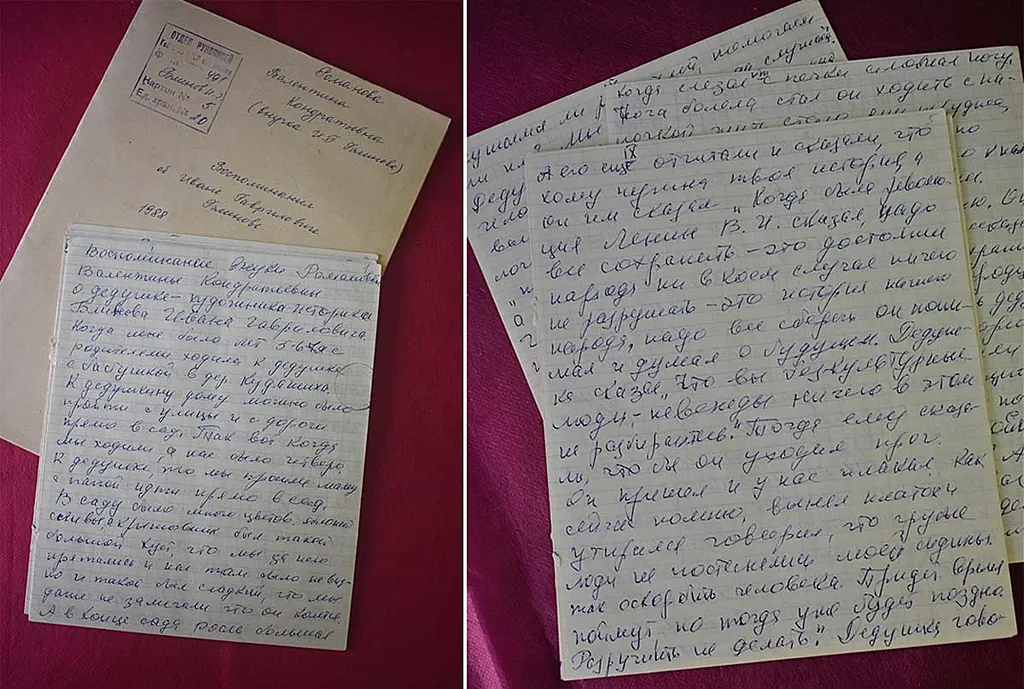 ОТДЕЛ РУКОПИСЕЙ
491
(Блинов И.)
Картон № 5
Ед. хран. № 20
Романова
Валентина
Кондратьевна
(внучка И.Г. Блинова)
Воспоминания
об Иване Гавриловиче
Блинове.
1988
Воспоминание внучки Романовой
Валентины Кондратьевны
о дедушке – художника историка
Блинова Ивана Гавриловича.
Когда мне было лет 5-6 я с
родителями, ходила к дедушке
с бабушкой в дер. Кудашиха.
К дедушкину дому можно было
пройти с улицы и с дороги
прямо в сад. Так вот когда
мы ходили, а нас было четверо,
к дедушке, то мы просим маму
с папой идти прямо в сад.
В саду было много цветов, яблони
сливы, а крыжовник был такой
большой куст, что мы за него
прятались и нас там было не вид-
но и такой был сладкий, что мы
даже не замечали что он колется.
А в конце сада росла большая
помогали
слушай
Когда слезал с печки сломал ногу,
Нога болела стал он ходить с па-
лочкой
IX
А его ещё отчитали и сказали, что
кому нужна твоя история, а
он им сказал „Когда была револю-
ция Ленин В. И. сказал, надо
все сохранить – это достояние
народа ни в коем случае ничего
не разрушать – это история нашего
народа, надо все сберечь он пони-
мал и думал о будущем. Дедуш-
ка сказал, „Что вы бескультурные
люди, – невежды ничего в этом
не разбираетесь." Тогда ему сказа-
ли, что бы он уходил проч.
Он пришел и у нас плакал как
сейчас помню, вынел платок и
утирался говорил, что грубые
люди не постеснялись моей седины.
так оскорбить человека. Придет время
поймут но тогда уже будет поздно.
Разрушить не делать". Дедушка гово-